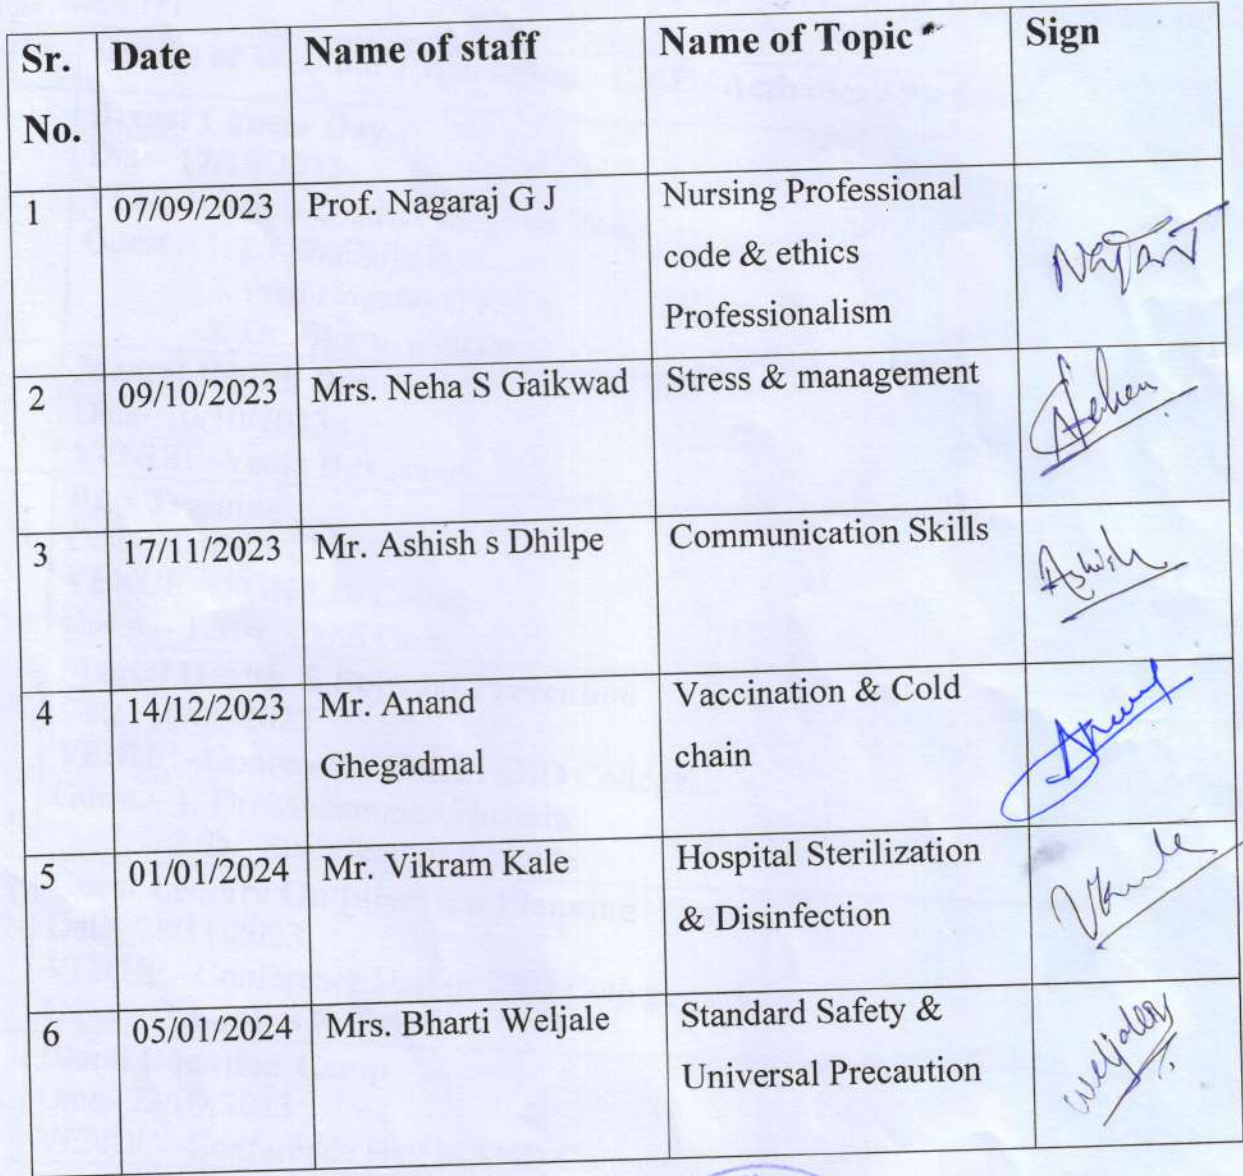 Sr. No. Date Name of staff Name of Topic Sign
1 07/09/2023 Prof. Nagaraj G J Nursing Professional
code & ethics
Professionalism
Nagaraj
2 09/10/2023 Mrs. Neha S Gaikwad Stress & management
Neha
3 17/11/2023 Mr. Ashish s Dhilpe Communication Skills
Ashish
4 14/12/2023 Mr. Anand Vaccination & Cold
Ghegadmal chain
Anand
5 01/01/2024 Mr. Vikram Kale Hospital Sterilization
& Disinfection
VKale
6 05/01/2024 Mrs. Bharti Weljale Standard Safety &
Universal Precaution
Weljale